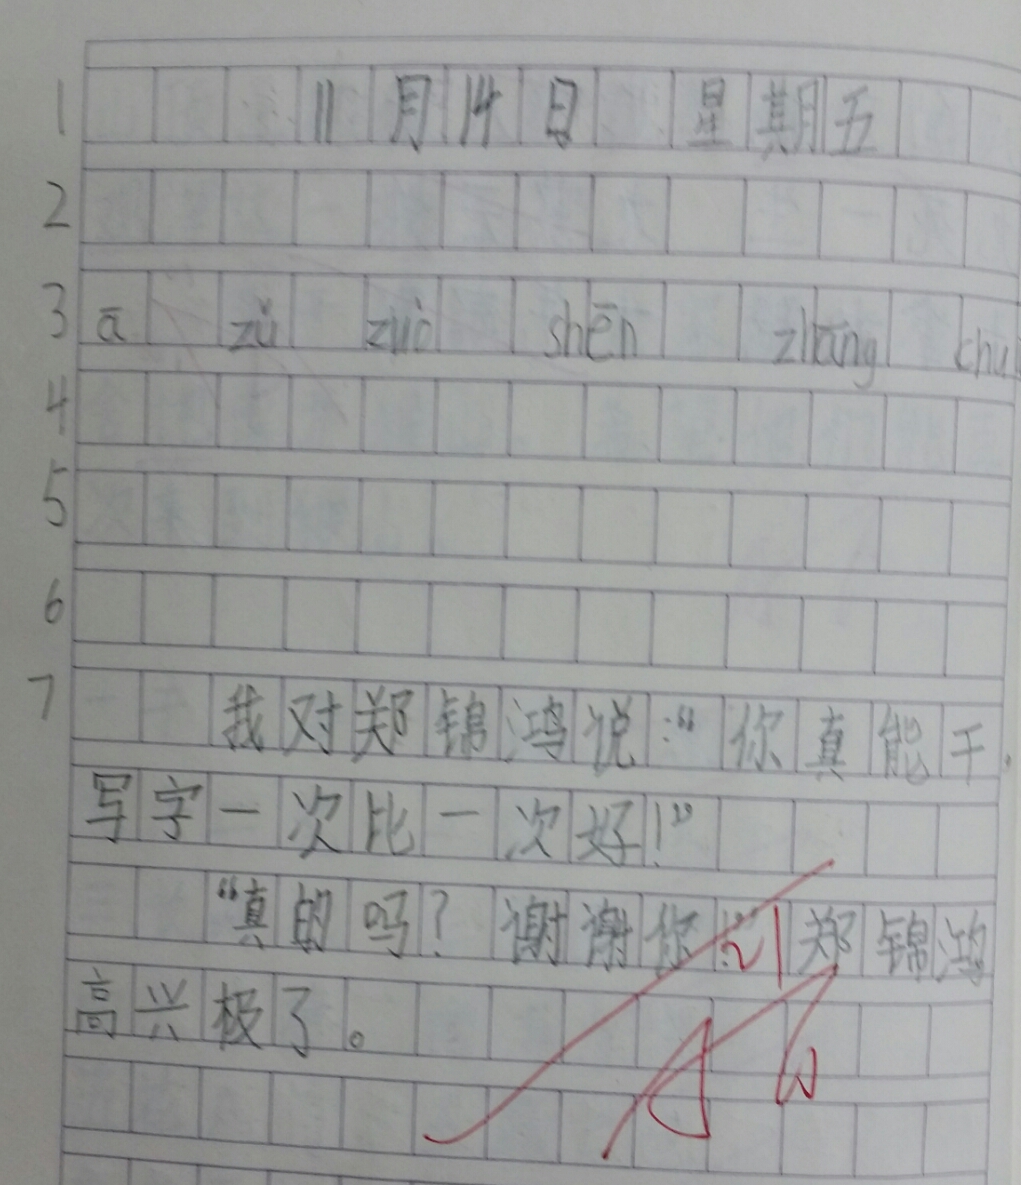 1 11月14日 星期五
2
3 ā zǔ zuò shēn zhāng chu
4
5
6
7 我对郑锦鸿说:“你真能干,
写字一次比一次好!”
“真的吗?谢谢你!”郑锦鸿
高兴极了。